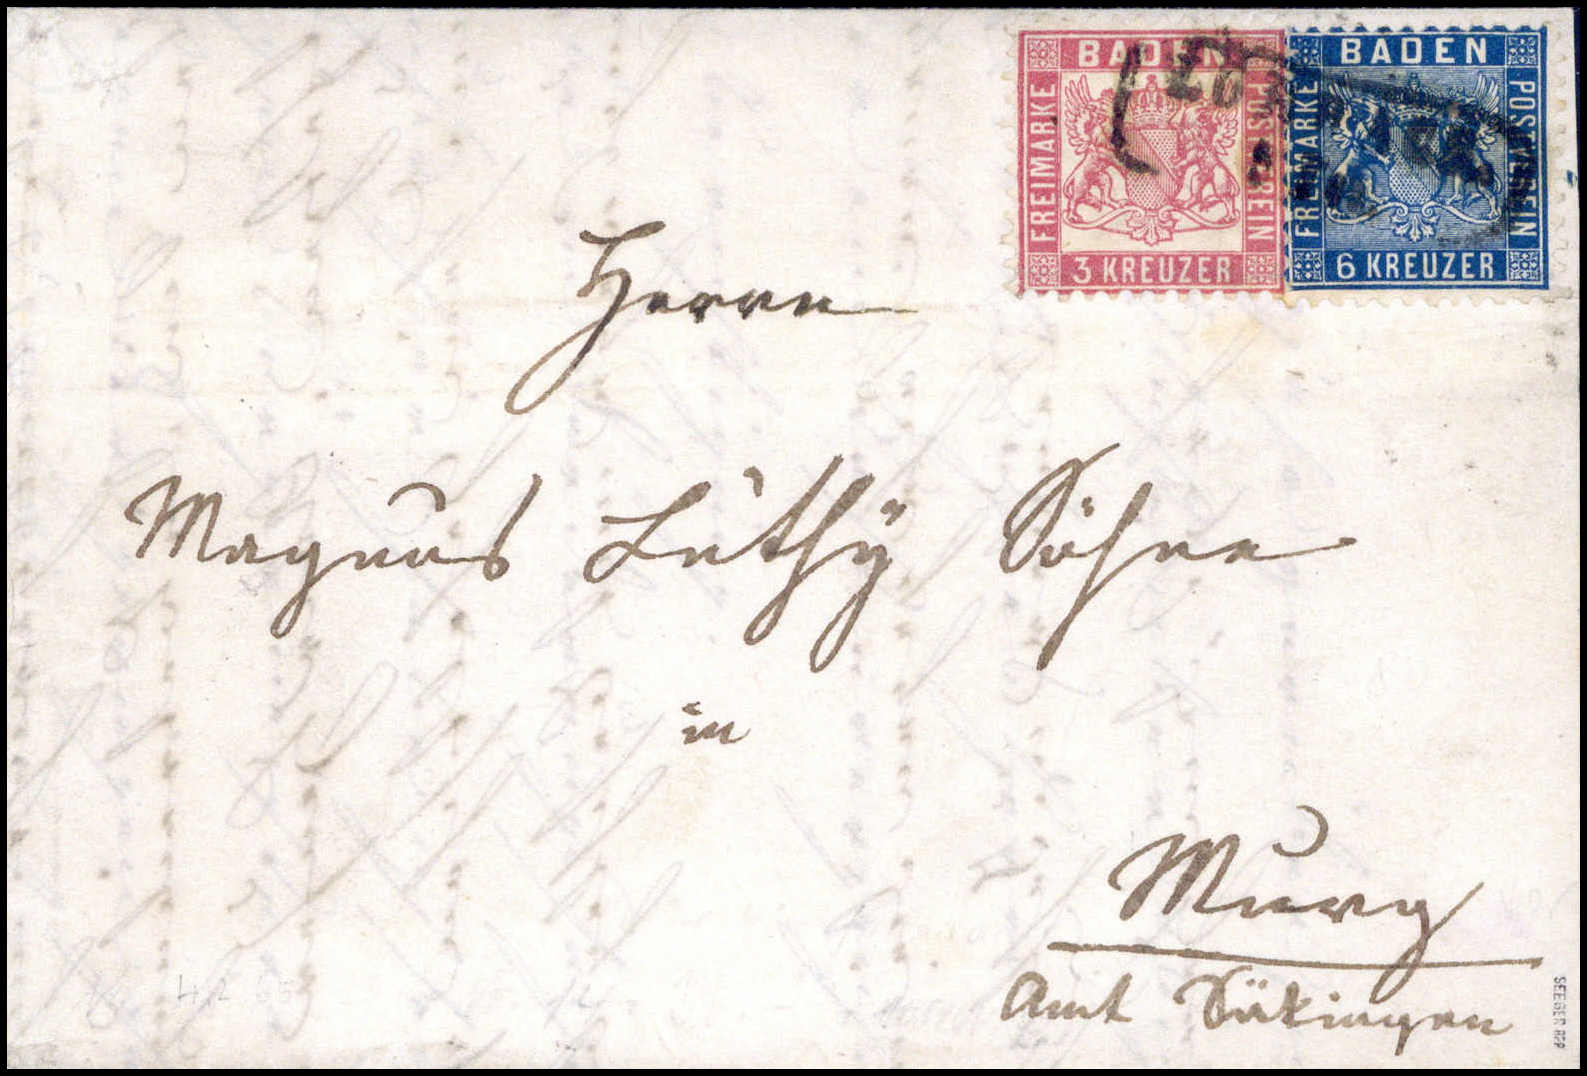 BADEN
FREIMARKE
POSTVEREIN
3 KREUZER
BADEN
FREIMARKE
POSTVEREIN
6 KREUZER
Herrn
Magnus Lüthÿ Söhne
in
Murg
Amt Säkingen
SEEGER BPP